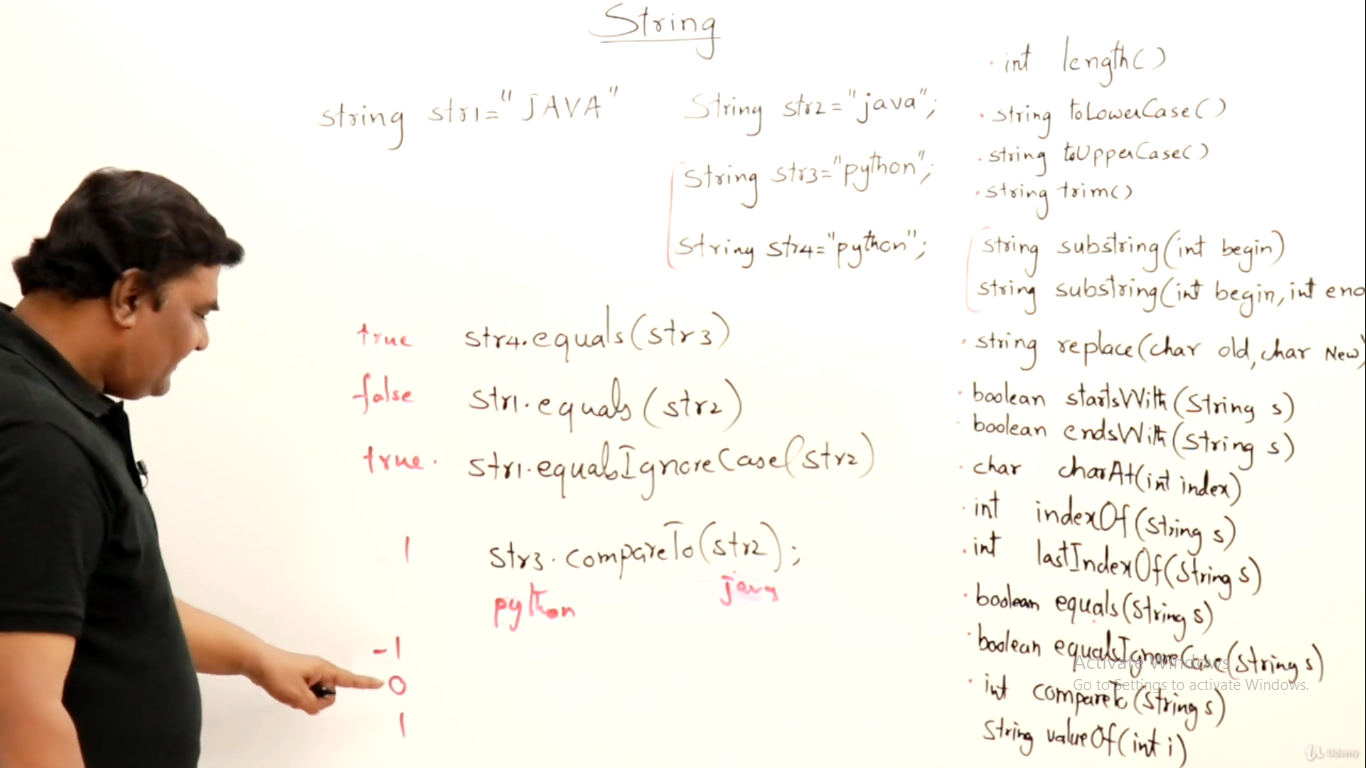 String
string str1="JAVA"
String str2="java";
String str3="python";
String str4="python";
true str4.equals(str3)
false str1.equals(str2)
true. str1.equalsIgnoreCase(str2)
1 str3.compareTo(str2);
python java
-1
0
1
. int length()
. string toLowerCase()
. string toUpperCase()
. string trim()
string substring(int begin)
string substring(int begin, int end
. string replace(char old, char New)
. boolean startsWith(String s)
. boolean endsWith(String s)
. char charAt(int index)
. int indexOf(String s)
. int lastIndexOf(String s)
. boolean equals(String s)
. boolean equalsIgnoreCase(String s)
. int compareTo(String s)
String valueOf(int i)
Activate Windows
Go to Settings to activate Windows.
Udemy